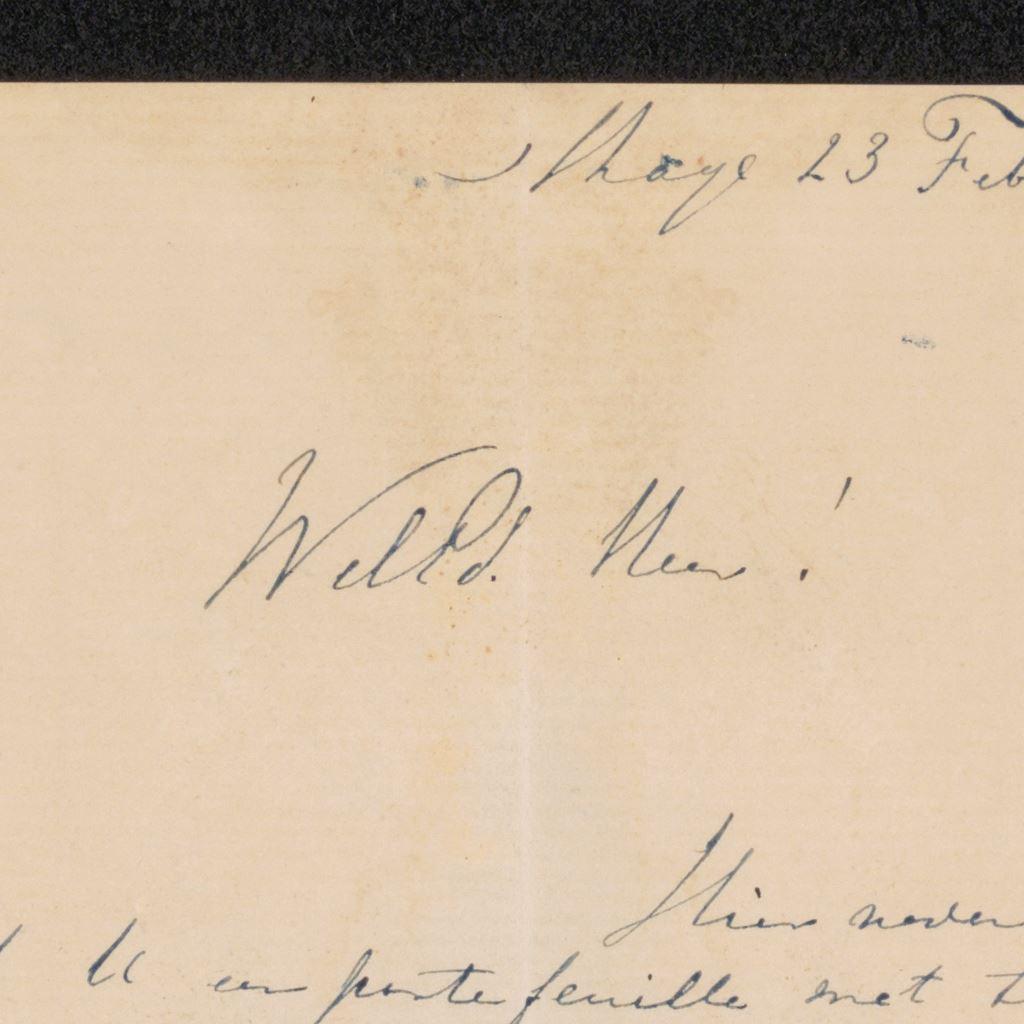 Shage 23 Feb
WelEd. Heer!
Hier neven
U een portefeuille met